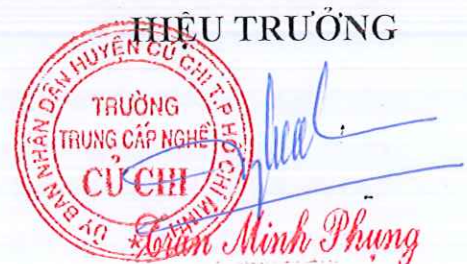 HIỆU TRƯỞNG
ỦY BAN NHÂN DÂN HUYỆN CỦ CHI T.P HỒ CHÍ MINH
TRƯỜNG
TRUNG CẤP NGHỀ
CỦ CHI
Trần Minh Phụng